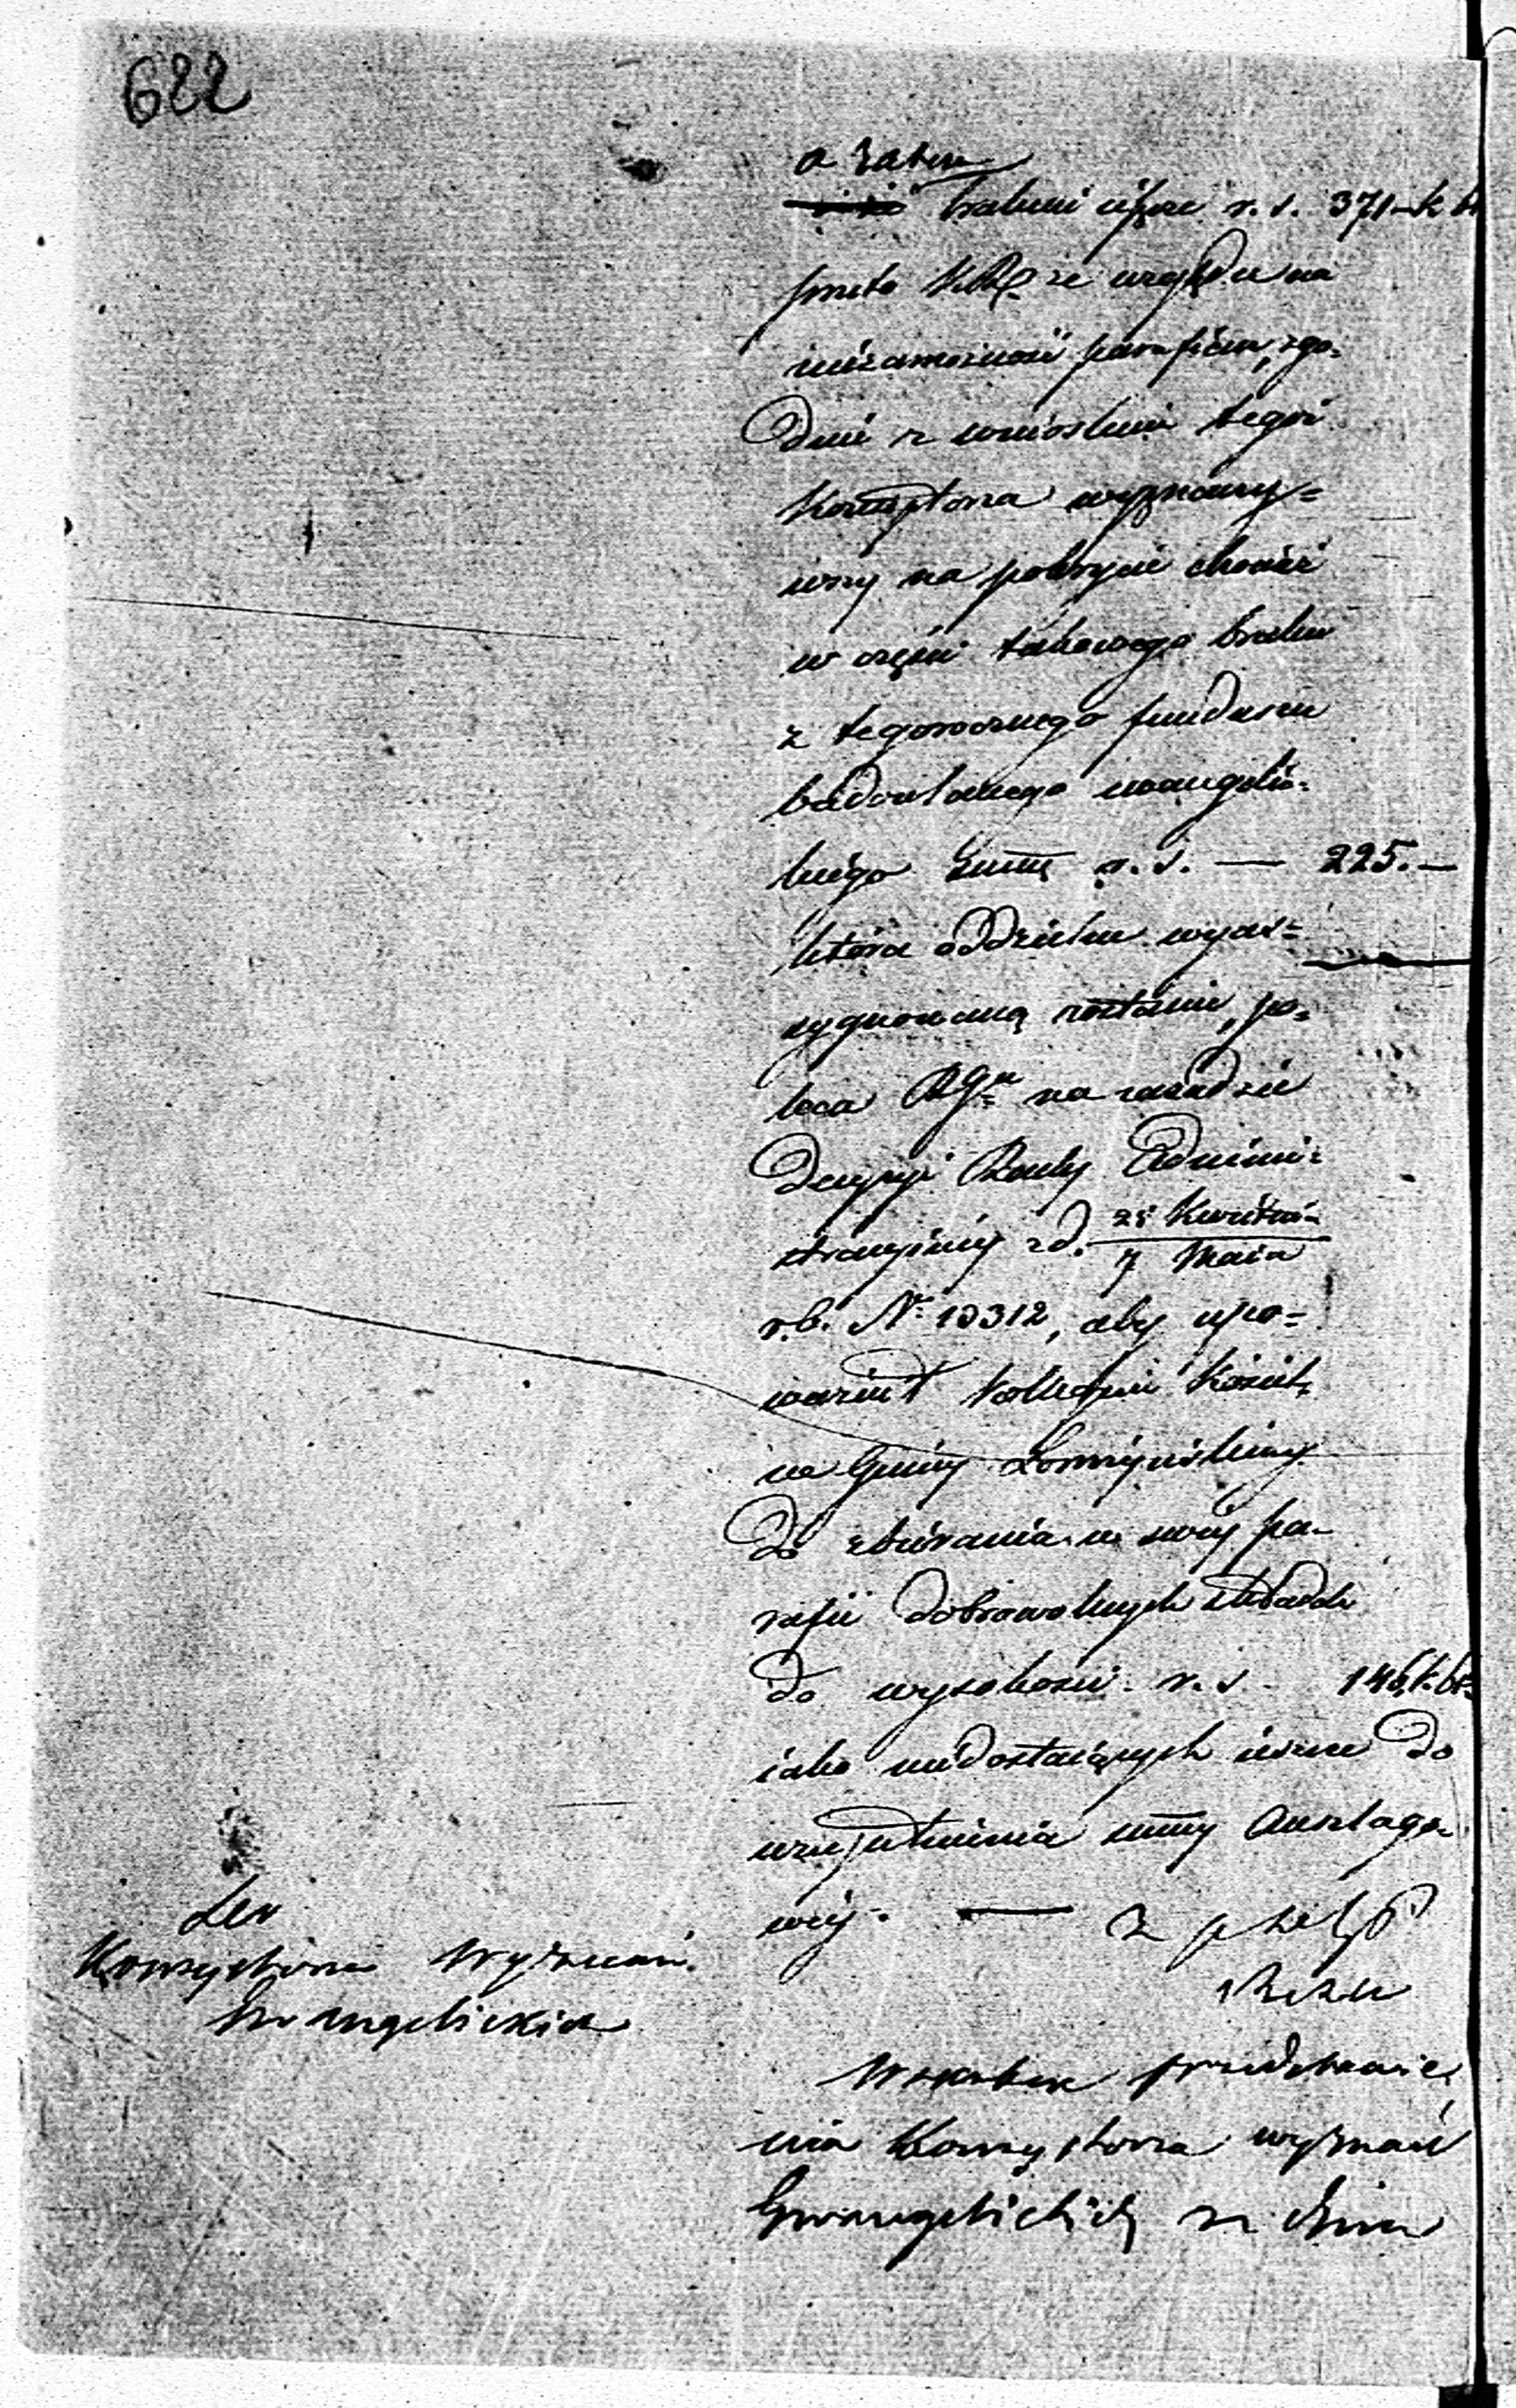 622
a zatem
brakuie ieszcze r. s. 371 k
przeto KRz ze względu na
niezamożność parafian, zgo-
dnie z wnioskiem tegoż
Konsystorza wyznaczy-
wszy na pokrycie chociaż
w części takowego braku
z tegorocznego funduszu
budowlanego ewangelic-
kiego Summę r. s. — 225. —
która oddzielnie wyas-
sygnowaną zostanie, po-
leca RGu na zasadzie
decyzyi Rady Admini-
stracyjnej z d. 25 Kwietnia / 7 Maia
r. b. Nr 10312, aby upo-
ważnił Kollegium Kościel-
ne Gminy Łomżyńskiey
do zbierania w swey pa-
rafii dobrowolnych składek
do wysokości r. s. 146 k.
iako niedostaiących ieszcze do
uzupełnienia summy Anszlago-
wey. —
Do
Konsystorza Wyznań
Ewangelickich
W skutek przedstawie-
nia Konsystorza wyznań
Ewangelickich z dnia